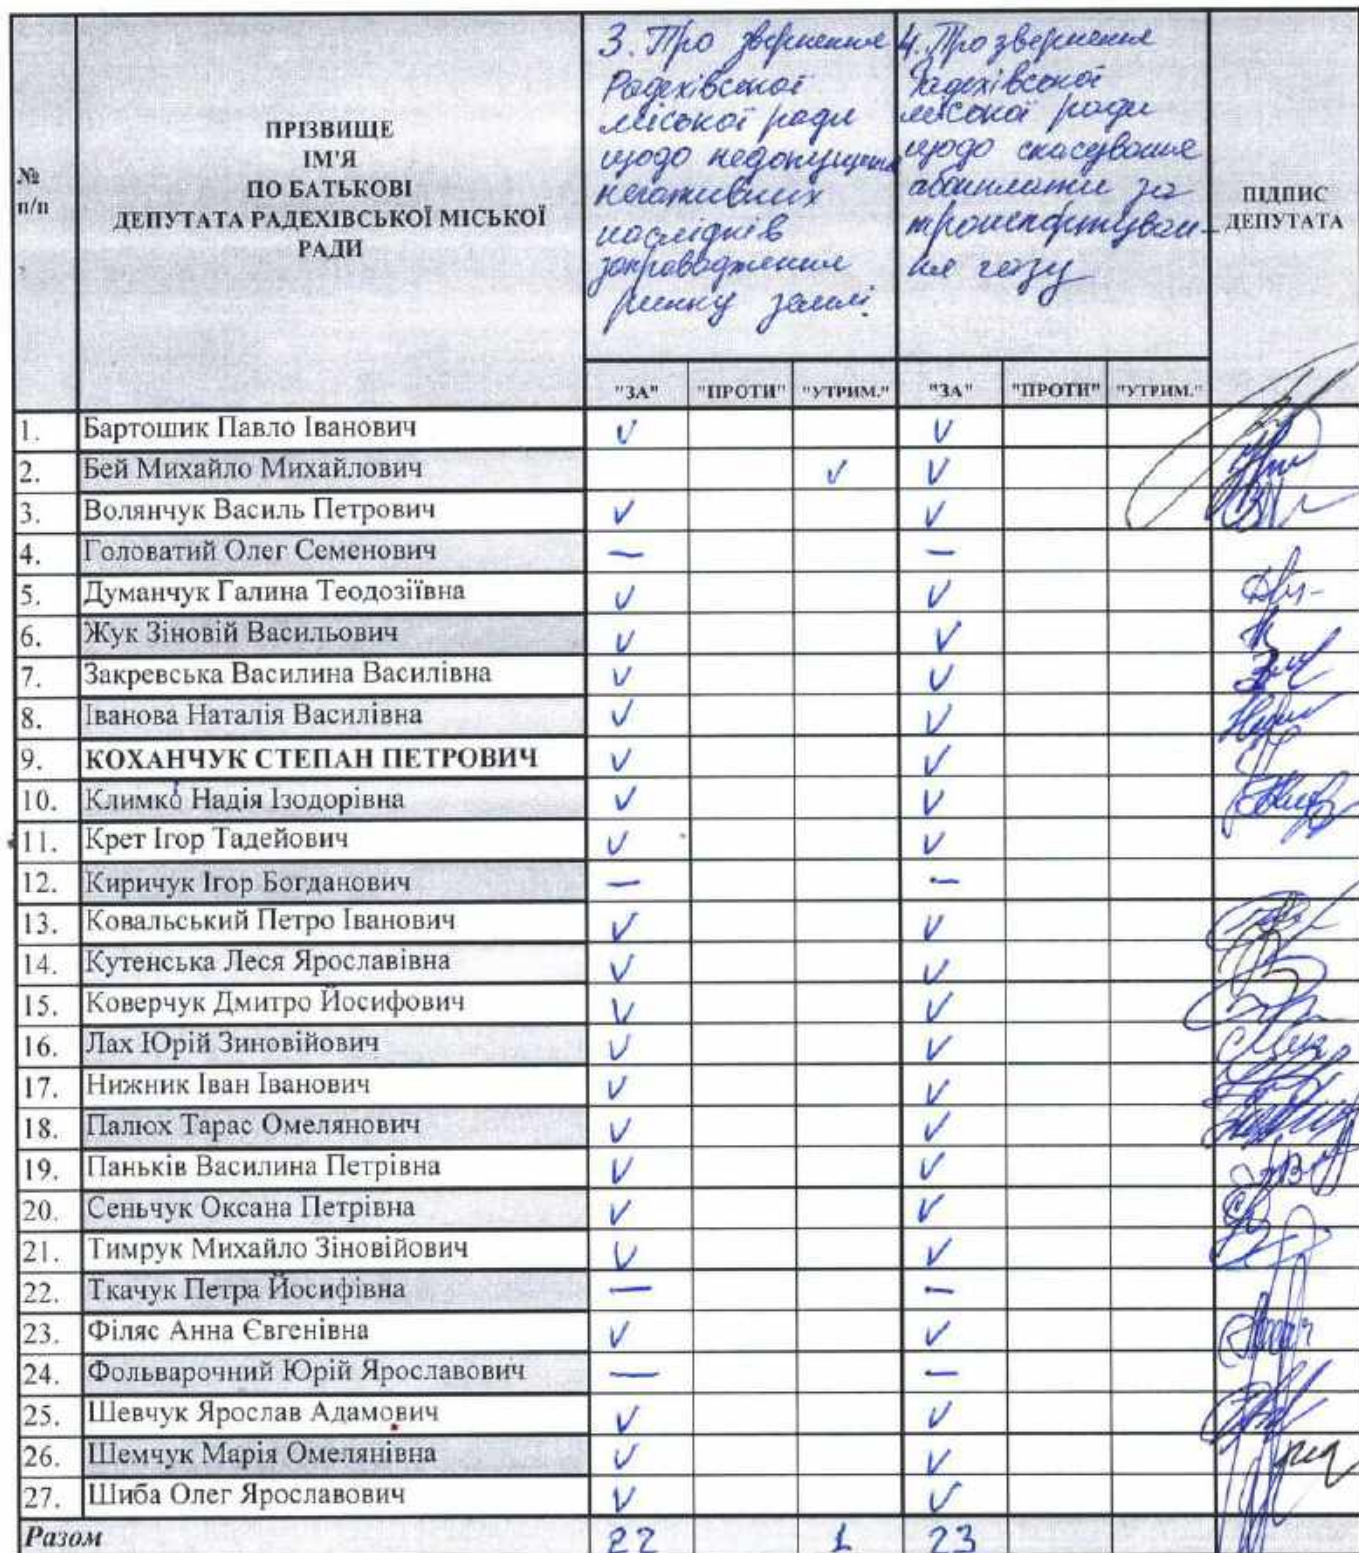 №
п/п
ПРІЗВИЩЕ
ІМ'Я
ПО БАТЬКОВІ
ДЕПУТАТА РАДЕХІВСЬКОЇ МІСЬКОЇ
РАДИ
3. Про звернення
Радехівської
міської ради
щодо недопущення
негативних
наслідків
запровадження
ринку землі.
4. Про звернення
Радехівської
міської ради
щодо скасування
абонплати за
транспортуван-
ня газу
ПІДПИС
ДЕПУТАТА
"ЗА" "ПРОТИ" "УТРИМ." "ЗА" "ПРОТИ" "УТРИМ."
1. Бартошик Павло Іванович V V
2. Бей Михайло Михайлович V V
3. Волянчук Василь Петрович V V
4. Головатий Олег Семенович — —
5. Думанчук Галина Теодозіївна V V
6. Жук Зіновій Васильович V V
7. Закревська Василина Василівна V V
8. Іванова Наталія Василівна V V
9. КОХАНЧУК СТЕПАН ПЕТРОВИЧ V V
10. Климко Надія Ізодорівна V V
11. Крет Ігор Тадейович V V
12. Киричук Ігор Богданович — —
13. Ковальський Петро Іванович V V
14. Кутенська Леся Ярославівна V V
15. Коверчук Дмитро Йосифович V V
16. Лах Юрій Зиновійович V V
17. Нижник Іван Іванович V V
18. Палюх Тарас Омелянович V V
19. Паньків Василина Петрівна V V
20. Сеньчук Оксана Петрівна V V
21. Тимрук Михайло Зіновійович V V
22. Ткачук Петра Йосифівна — —
23. Філяс Анна Євгенівна V V
24. Фольварочний Юрій Ярославович — —
25. Шевчук Ярослав Адамович V V
26. Шемчук Марія Омелянівна V V
27. Шиба Олег Ярославович V V
Разом 22 1 23